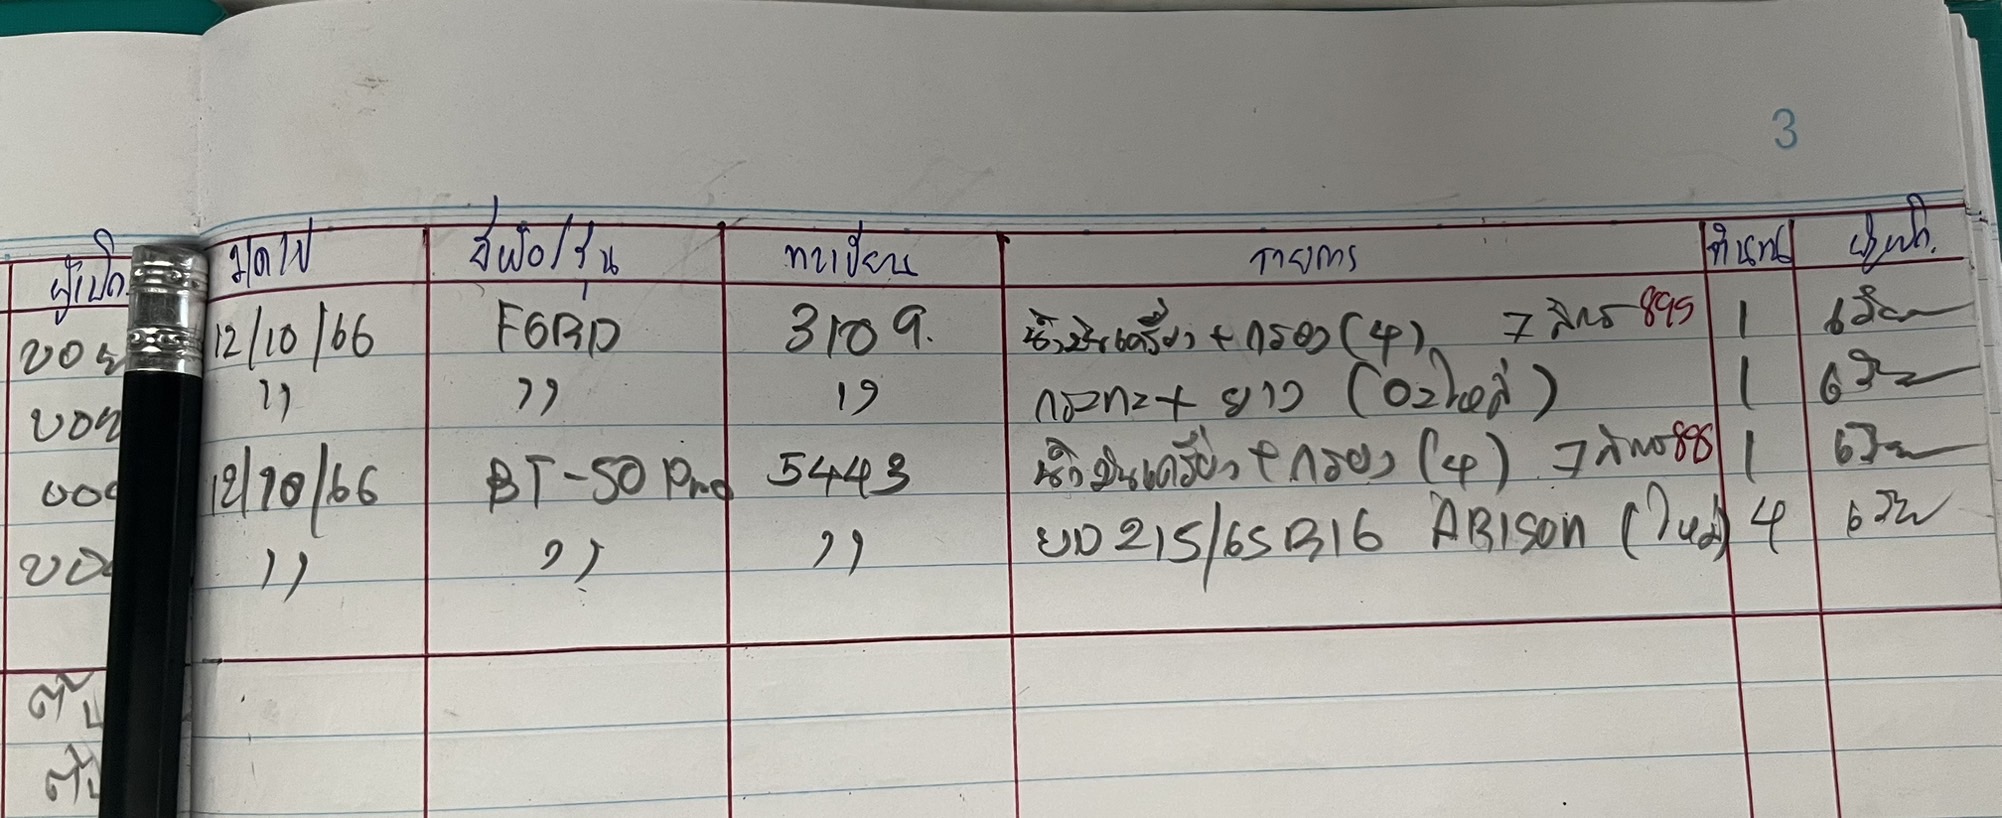 3
ผู้เบิก ว/ด/ป ยี่ห้อ/รุ่น ทะเบียน รายการ จำนวน ผู้เบิก.
12/10/66 FORD 3109. น้ำมันเครื่อง + กรอง (4) 7 ลิตร 895 1
" " " กระทะ + ยาง (อะไหล่) 1
12/10/66 BT-50 Pro 5443 น้ำมันเครื่อง + กรอง (4) 7 ลิตร 898 1
" " " 215/65R16 ARISON (ใหม่) 4